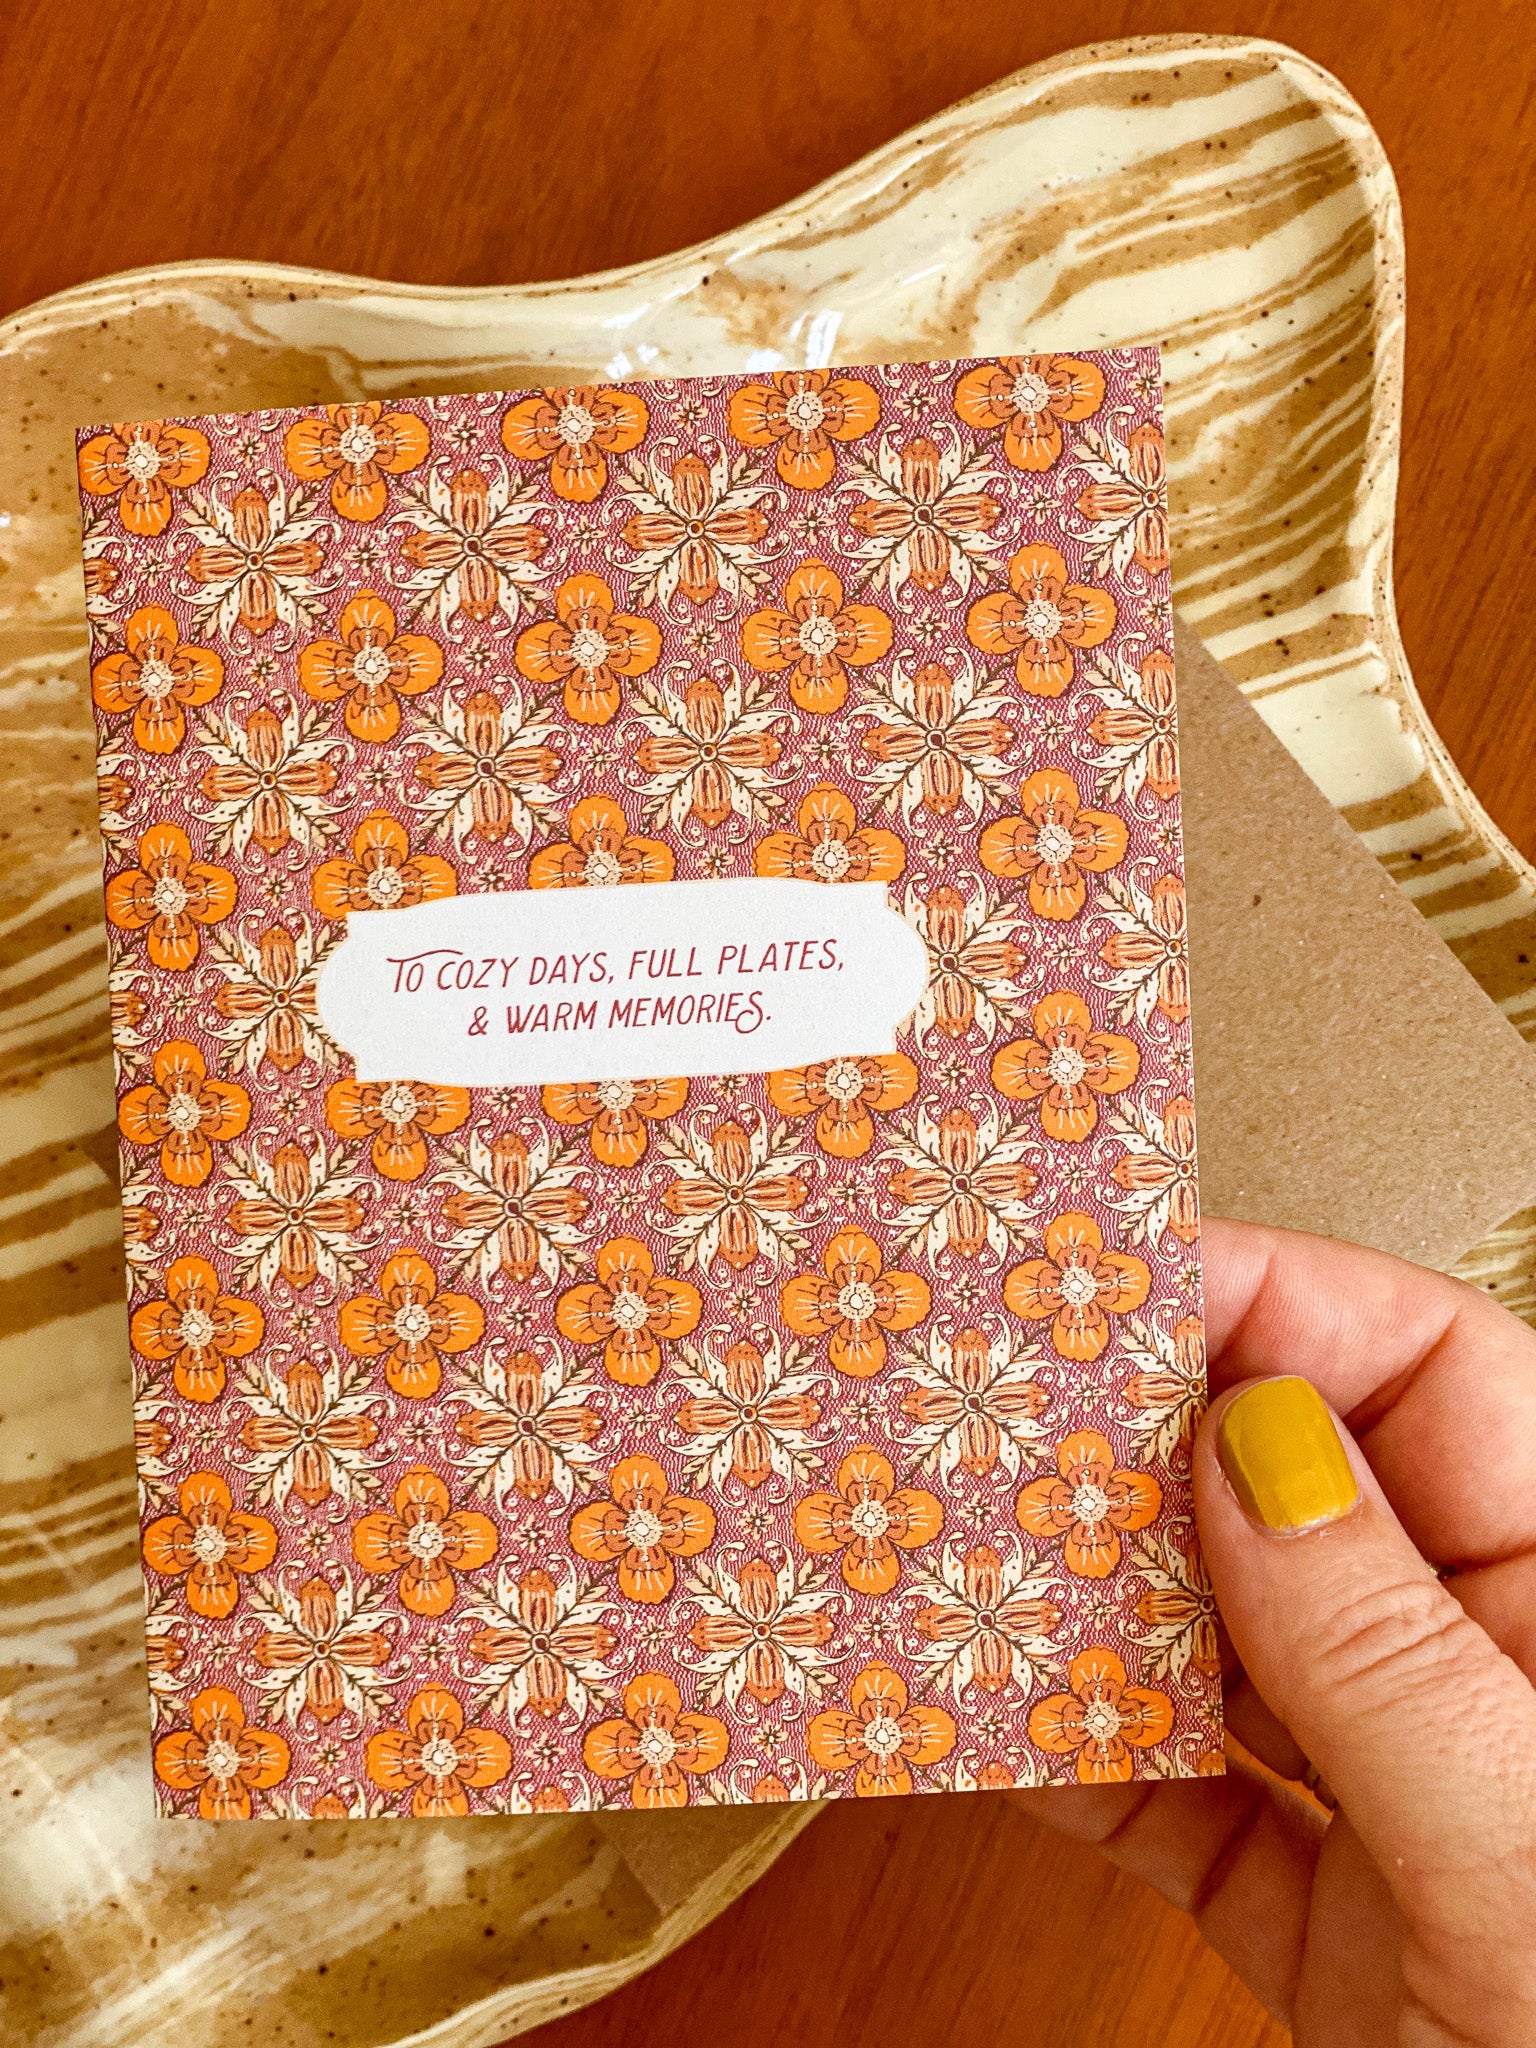 TO COZY DAYS, FULL PLATES,
& WARM MEMORIES.